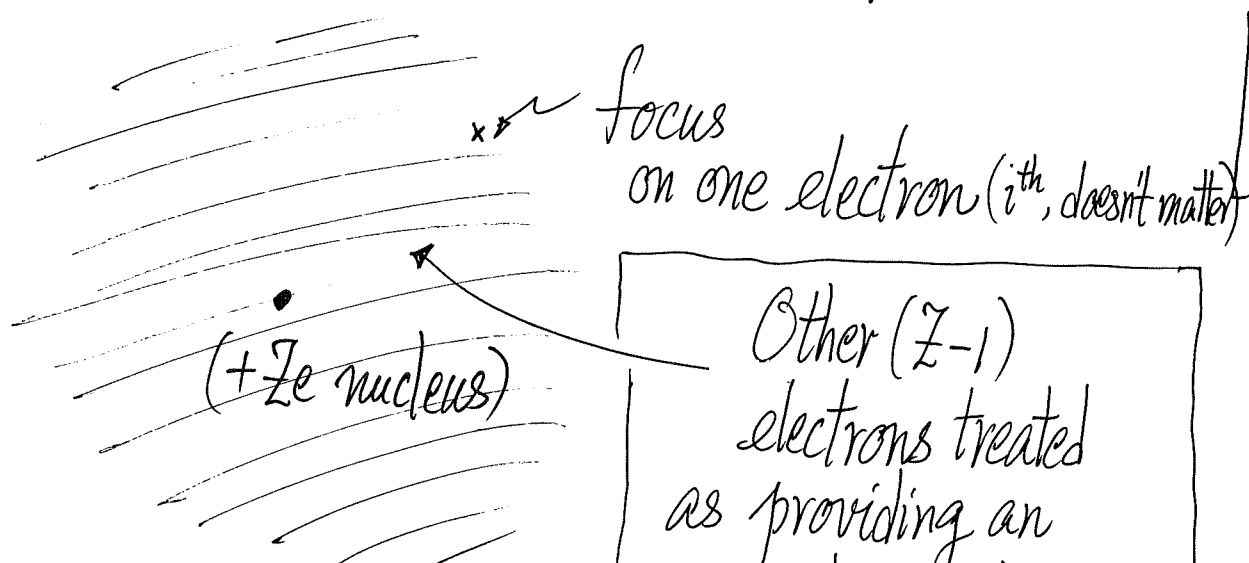 focus
on one electron (i^th, doesn't matter)
(+Ze nucleus)
Other (Z-1)
electrons treated
as providing an